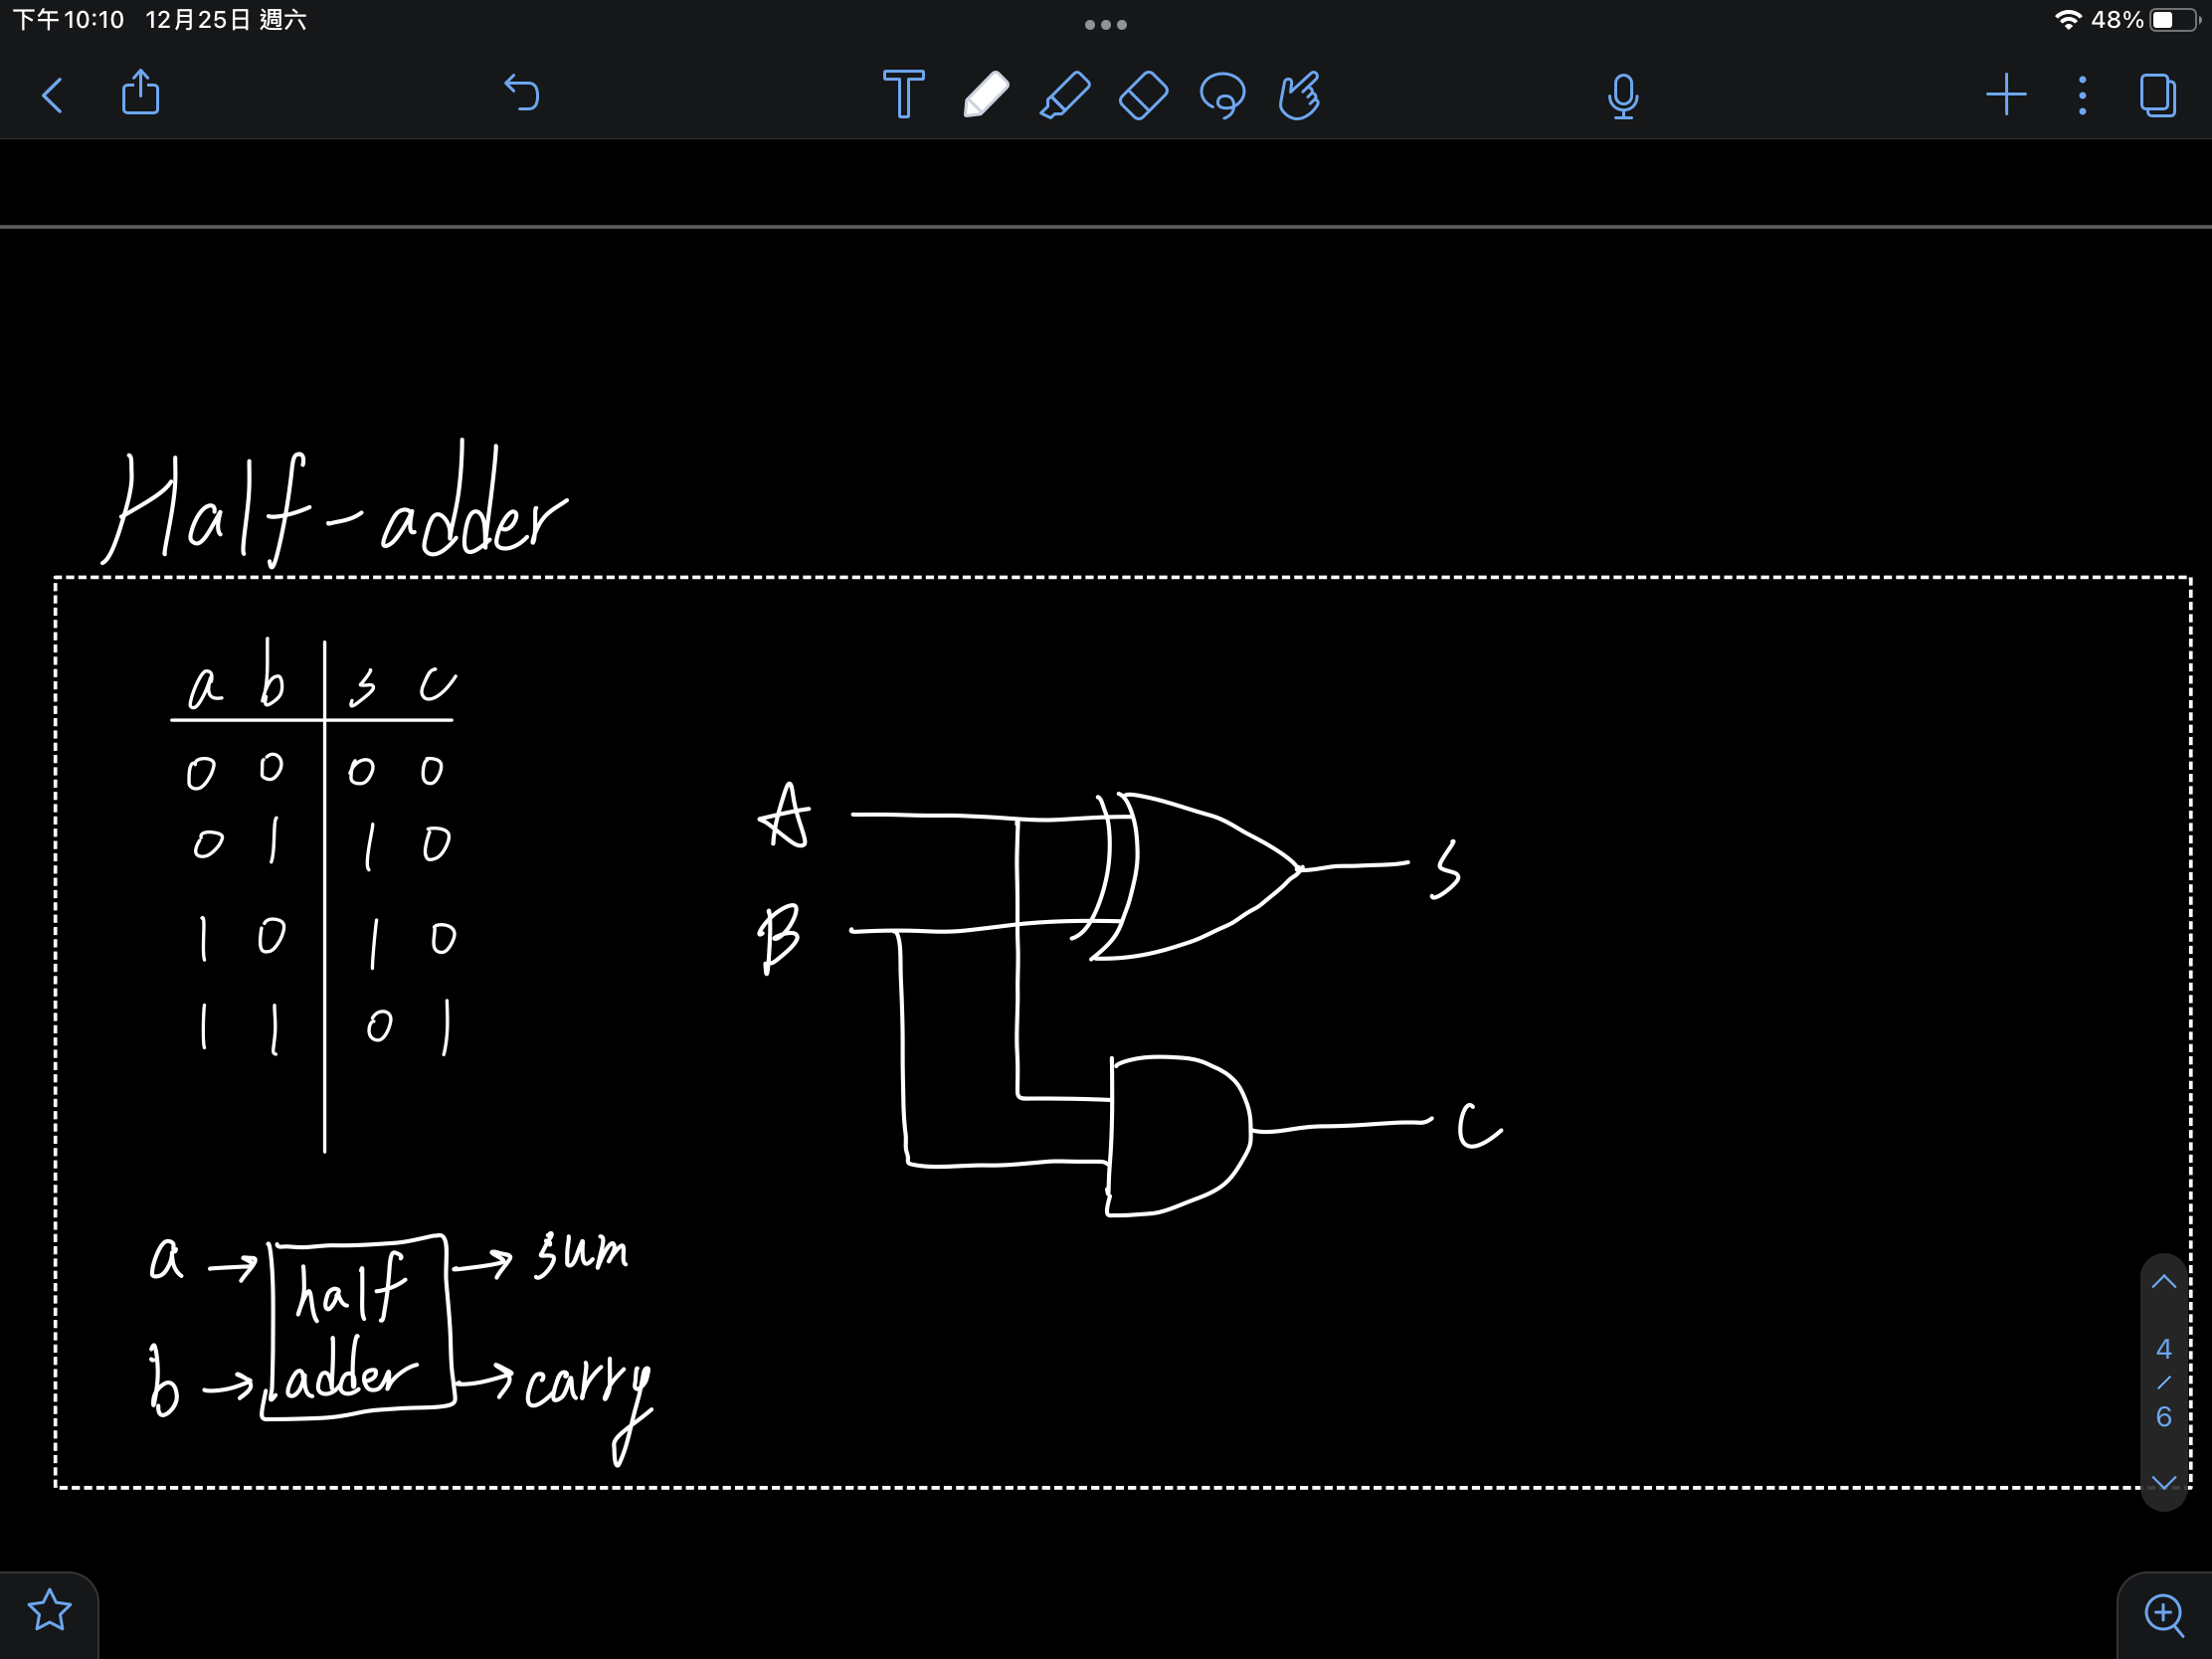 下午10:10 12月25日 週六
48%
T
Half-adder
a b s c
0 0 0 0
0 1 1 0
1 0 1 0
1 1 0 1
A
S
B
C
a → half → sum
b → adder → carry
4
/
6